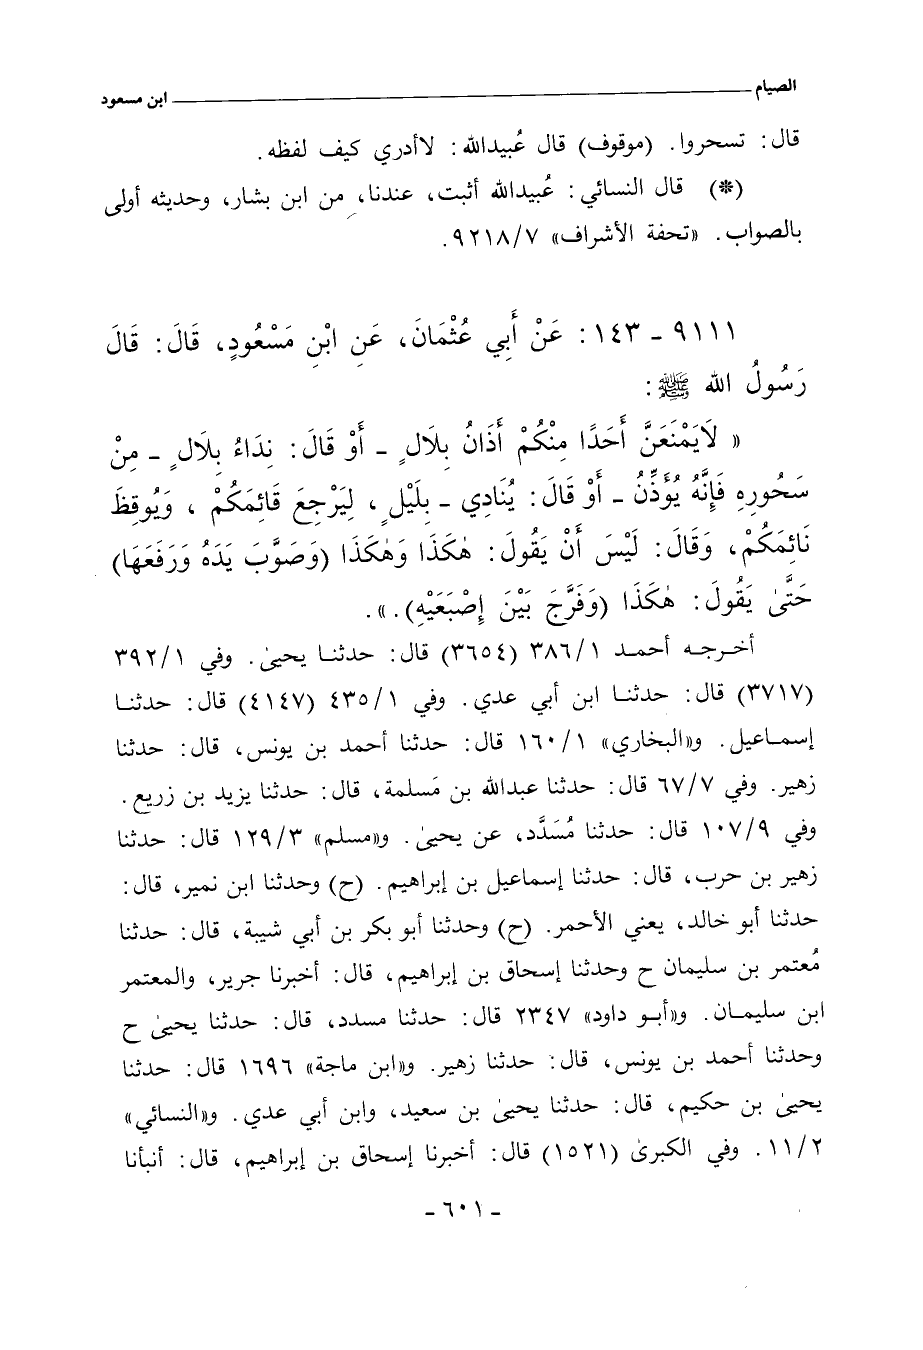 الصيام ــــــــــ ابن مسعود
قال: تسحروا. (موقوف) قال عُبيدالله: لاأدري كيف لفظه.
(*) قال النسائي: عُبيدالله أثبت، عندنا، من ابن بشار، وحديثه أولى
بالصواب. «تحفة الأشراف» ٩٢١٨/٧.
٩١١١ ـ ١٤٣: عَنْ أَبِي عُثْمَانَ، عَنِ ابْنِ مَسْعُودٍ، قَالَ: قَالَ
رَسُولُ الله ﷺ:
« لَايَمْنَعَنَّ أَحَدًا مِنْكُمْ أَذَانُ بِلَالٍ ـ أَوْ قَالَ: نِدَاءُ بِلَالٍ ـ مِنْ
سَحُورِهِ فَإِنَّهُ يُؤَذِّنُ ـ أَوْ قَالَ: يُنَادِي ـ بِلَيْلٍ، لِيَرْجِعَ قَائِمَكُمْ، وَيُوقِظَ
نَائِمَكُمْ، وَقَالَ: لَيْسَ أَنْ يَقُولَ: هٰكَذَا وَهٰكَذَا (وَصَوَّبَ يَدَهُ وَرَفَعَهَا)
حَتَّىٰ يَقُولَ: هٰكَذَا (وَفَرَّجَ بَيْنَ إِصْبَعَيْهِ).».
أخرجه أحمد ٣٨٦/١ (٣٦٥٤) قال: حدثنا يحيىٰ. وفي ٣٩٢/١
(٣٧١٧) قال: حدثنا ابن أبي عدي. وفي ٤٣٥/١ (٤١٤٧) قال: حدثنا
إسماعيل. و«البخاري» ١٦٠/١ قال: حدثنا أحمد بن يونس، قال: حدثنا
زهير. وفي ٦٧/٧ قال: حدثنا عبدالله بن مَسلمة، قال: حدثنا يزيد بن زريع.
وفي ١٠٧/٩ قال: حدثنا مُسَدَّد، عن يحيىٰ. و«مسلم» ١٢٩/٣ قال: حدثنا
زهير بن حرب، قال: حدثنا إسماعيل بن إبراهيم. (ح) وحدثنا ابن نمير، قال:
حدثنا أبو خالد، يعني الأحمر. (ح) وحدثنا أبو بكر بن أبي شيبة، قال: حدثنا
مُعتمر بن سليمان ح وحدثنا إسحاق بن إبراهيم، قال: أخبرنا جرير، والمعتمر
ابن سليمان. و«أبو داود» ٢٣٤٧ قال: حدثنا مسدد، قال: حدثنا يحيىٰ ح
وحدثنا أحمد بن يونس، قال: حدثنا زهير. و«ابن ماجة» ١٦٩٦ قال: حدثنا
يحيىٰ بن حكيم، قال: حدثنا يحيىٰ بن سعيد، وابن أبي عدي. و«النسائي»
١١/٢. وفي الكبرىٰ (١٥٢١) قال: أخبرنا إسحاق بن إبراهيم، قال: أنبأنا
ـ ٦٠١ ـ